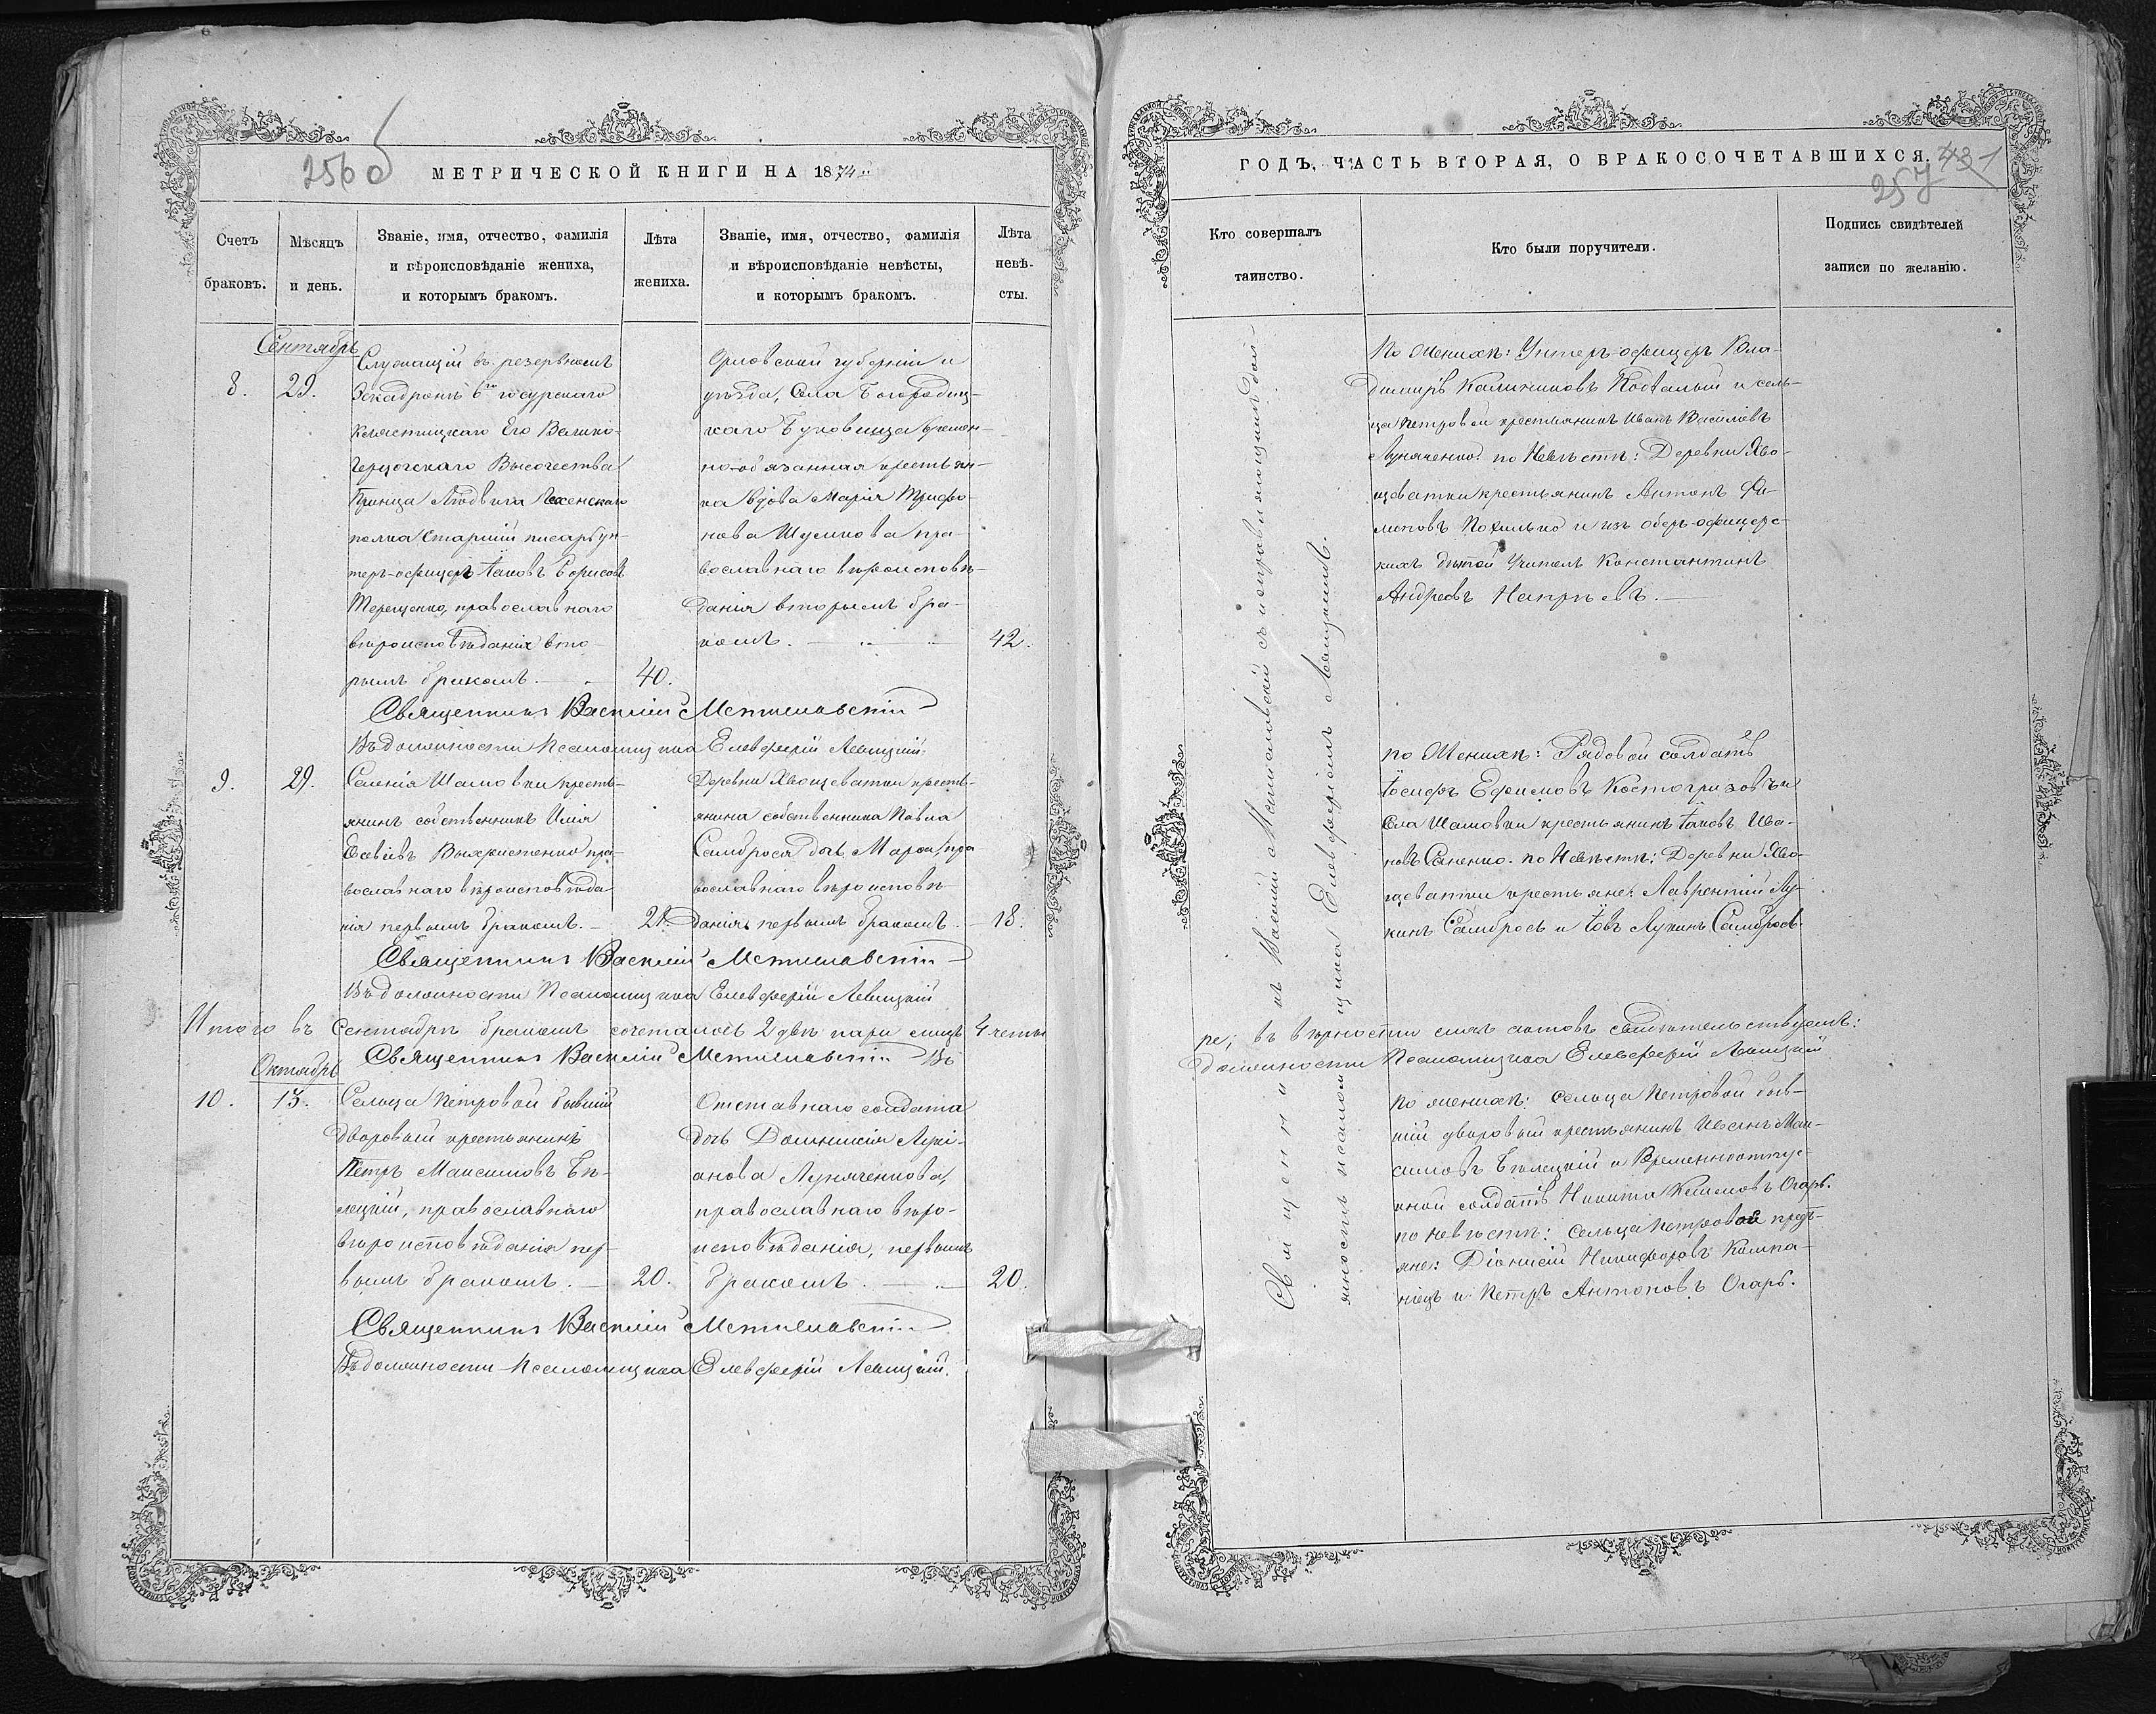 256об
МЕТРИЧЕСКОЙ КНИГИ НА 1874
Счетъ браковъ.
Мѣсяцъ и день.
Званіе, имя, отчество, фамилія
и вѣроисповѣданіе жениха,
и которымъ бракомъ.
Лѣта жениха.
Званіе, имя, отчество, фамилія
и вѣроисповѣданіе невѣсты,
и которымъ бракомъ.
Лѣта невѣ-
сты.
Сентябрь
8. 29.
Служащій въ резервномъ
Эскадронѣ 6го гусурскаго
Клястицкаго Его Велико-
герцогскаго Высочества
Принца Людвига Гессенскаго
полка Старшій писарь ун-
теръ-офицеръ Іаковъ Борисовъ
Терещенко, православнаго
вѣроисповѣданія вто-
рымъ бракомъ. 40.
Орловской губерніи и
уѣзда, Села Богородиц-
каго Буковища времен-
но-обязанная крестьян-
ка Вдова Марія Трифо-
нова Шумкова пра-
вославнаго вѣроисповѣ-
данія вторымъ бра-
комъ. 42.
Священникъ Василій Мстиславскій
Въ должности Псаломщика Елевферій Левицкій.
9. 29.
Селенія Шамовки кресть-
янинъ собственникъ Илія
Вахристенко пра-
вославнаго вѣроисповѣда-
нія первымъ бракомъ. 21.
Деревни Хвощеватки кресть-
янина собственника Павла
Самброся дочь Марѳа, пра
вославнаго вѣроисповѣ-
данія первымъ бракомъ. 18.
Священникъ Василій Мстиславскій
Въ должности Псаломщика Елевферій Левицкій
Итого въ Сентябрѣ бракомъ сочеталось 2 двѣ пары лицъ 4 четы
Священникъ Василій Мстиславскій Въ
Октябрь
10. 13.
Сельца Петровой бывшій
дворовый крестьянинъ
Петръ Максимовъ Бѣ-
лецкій, православнаго
вѣроисповѣданія пер-
вымъ бракомъ. 20.
Отставнаго солдата
дочь Домникія Лукі-
анова Лукяченкова,
православнаго вѣро-
исповѣданія, первымъ
бракомъ. 20.
Священникъ Василій Мстиславскій
Въ должности Псаломщика Елевферій Левицкій.
ГОДЪ, ЧАСТЬ ВТОРАЯ, О БРАКОСОЧЕТАВШИХСЯ.
431
257
Кто совершалъ
таинство.
Кто были поручители.
Подпись свидѣтелей
записи по желанію.
Священникъ Василій Мстиславскій съ исправляющимъ дол-
жность псаломщика Елевферіемъ Левицкимъ.
По Женихѣ: Унтеръ-офицеръ Вла-
димиръ Калиниковъ и сель-
ца Петровой крестьянинъ Иванъ Василіевъ
Лукяченко. по Невѣстѣ: Деревни Хво-
щеватки крестьянинъ Антонъ Фи-
моновъ Похилько и изъ оберъ-офицерс-
кихъ дѣтей Учитель Константинъ
Андреевъ
по Женихѣ: Рядовой солдатъ
Іосифъ Ефимовъ Костогризовъ и
Села Шамовки крестьянинъ Іаковъ Ива-
новъ Саненко. по Невѣстѣ: Деревни Хво-
щеватки крестьяне: Лаврентій Лу-
кинъ Самбросъ и Іовъ Лукинъ Самбросъ.
ре; въ вѣрности сихъ актовъ свидѣтельствуемъ:
должности Псаломщика Елевферій Левицкій
По женихѣ: Сельца Петровой быв-
шій дворовый крестьянинъ Иванъ Мак-
симовъ Бѣлецкій и Временноотпус-
кной солдатъ Никита Климовъ Огарь.
по невѣстѣ: Сельца Петровой кресть-
яне: Діонисій Никифоровъ Компа-
ніецъ и Петръ Антоновъ Огарь.